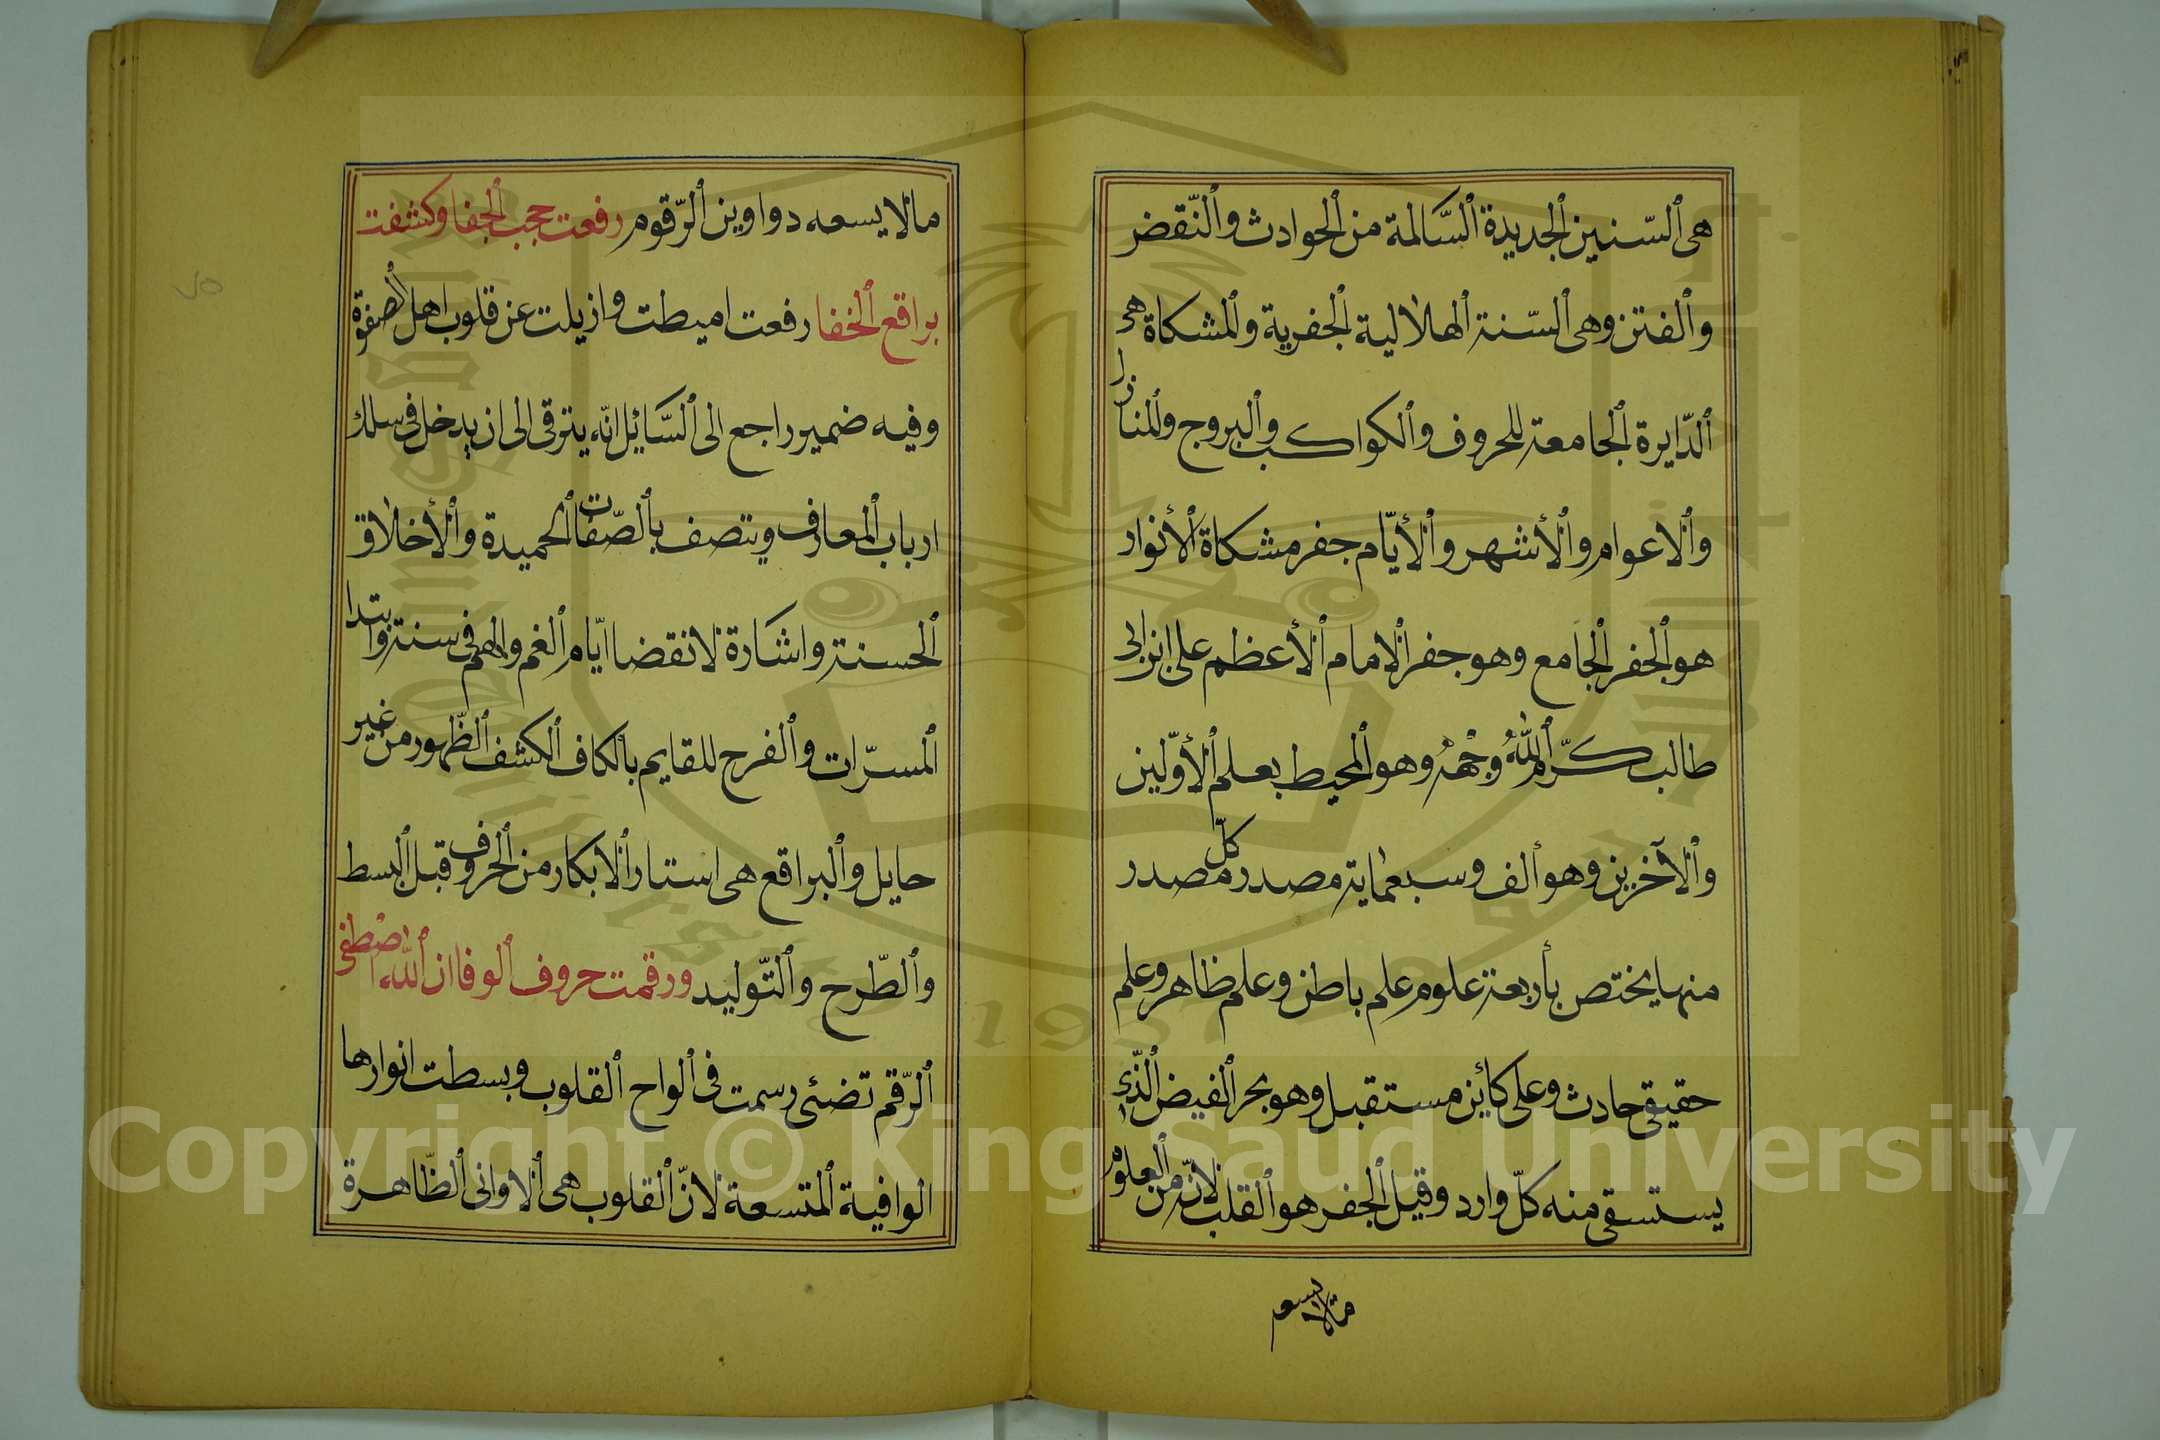 هى ٱلسّنين ٱلجديدة ٱلسَّالمة من ٱلحوادث وٱلنّقض
وٱلفتن وهى ٱلسّنة ٱلهلالية ٱلجفرية وٱلمشكاة هى
ٱلدّايرة ٱلجامعة للحروف وٱلكواكب وٱلبروج وٱلمنازل
وٱلاعوام وٱلأشهر وٱلأيّام جفر مشكاة ٱلأنوار
هو ٱلجفر ٱلجامع وهو جفر ٱلامام ٱلأعظم على ابن ابى
طالب كرّم ٱللّٰهُ وجْههُ وهو ٱلمحيط بعلم ٱلأوّلين
وٱلآخرين وهو ألف وسبعماية مصدر كلّ مصدر
منها يختص بأربعة علوم علم باطن وعلم ظاهر وعلم
حقيقى حادث وعلى كائن مستقبل وهو بحر ٱلفيض ٱلّذى
يستسقى منه كلّ وارد وقيل ٱلجفر هو ٱلقلب لانّه من ٱلعلوم
مالا يسعه
مالا يسعه دواوين ٱلرّقوم رفعت حجب ٱلجفا وكشفت
براقع ٱلخفا رفعت اميطت وازيلت عن قلوب اهل ٱلصفوة
وفيه ضمير راجع الى ٱلسَّائل انّه يترقى الى ان يدخل فى سلك
ارباب ٱلمعارف ويتصف بٱلصّفات ٱلحميدة وٱلأخلاق
ٱلحسنة واشارة لانقضا ايّام ٱلغم والهم فى سنة وابتدا
ٱلمسرّات وٱلفرح للقايم بٱلكاف ٱلكشف ٱلظّهور من غير
حايل وٱلبراقع هى استار ٱلابكار من ٱلحروف قبل ٱلبسط
وٱلطّرح وٱلتّوليد ورقمت حروف ٱلوفا ان ٱللّٰه اصطفى
ٱلرّقم تضئى رسمت فى ٱلواح ٱلقلوب وبسطت انوارها
الوافية ٱلمتسعة لانّ ٱلقلوب هى ٱلاوانى ٱلظّاهرة
٧٥
Copyright © King Saud University
1957